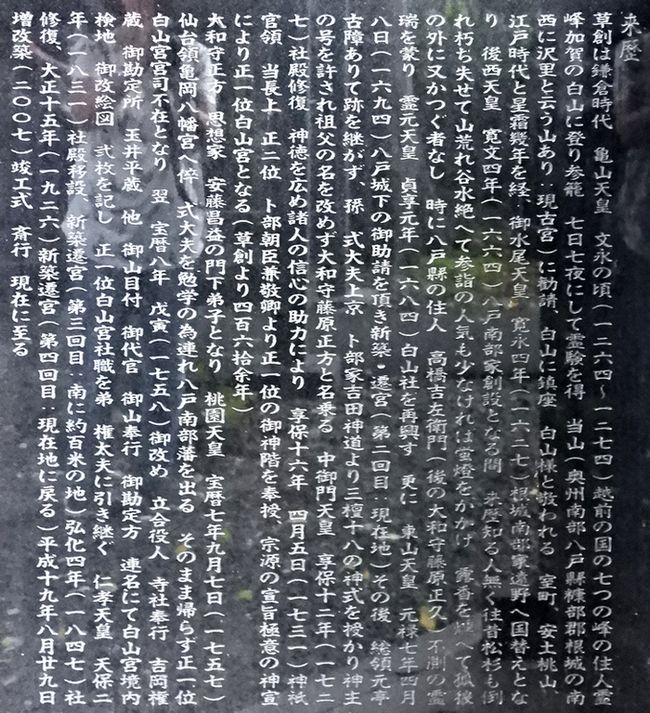 来歴
草創は鎌倉時代　亀山天皇　文永の頃（一二六四～一二七四）越前の国の七つの峰の住人霊
峰加賀の白山に登り参籠　七日七夜にして霊験を得　当山（奥州南部八戸縣糠部郡根城の南
西に沢里と云う山あり：現古宮）に勧請、白山に鎮座　白山様と敬われる　室町、安土桃山、
江戸時代と星霜幾年を経、御水尾天皇　寛永四年（一六二七）根城南部家遠野へ国替えとな
り　後西天皇　寛文四年（一六六四）八戸南部家創設となる間　来歴知る人無く往昔松杉も倒
れ朽ち失せて山荒れ谷水絶へて参詣の人気も少なければ蛍燈をかかげ　露香を　へて狐狼
の外に又かつぐ者なし　時に八戸縣の住人　高橋吉左衛門（後の大和守藤原正久）不測の霊
瑞を蒙り　霊元天皇　貞享元年（一六八四）白山社を再興す　更に　東山天皇　元禄七年四月
八日（一六九四）八戸城下の御助請を頂き新築・遷宮（第二回目：現在地）その後　総領元亭
古障ありて跡を継がず、孫　式大夫上京　卜部家吉田神道より三檀十八の神式を授かり神主
の号を許され祖父の名を改めず大和守藤原正方と名乗る　中御門天皇　享保十二年（一七二
七）社殿修復　神徳を広め諸人の信心の助力により　享保十六年　四月五日（一七三一）神祇
官領　当長上　正二位　卜部朝臣兼敬卿より正一位の御神階を奉授、宗源の宣旨極意の神宣
により正一位白山宮となる（草創より四百六拾余年）
大和守正方　思想家　安藤昌益の門下弟子となり　桃園天皇　宝暦七年九月七日（一七五七）
仙台領亀岡八幡宮へ倅　式大夫を勉学の為連れ八戸南部藩を出る　そのまま帰らず正一位
白山宮宮司不在となり　翌　宝暦八年　戊寅（一七五八）御改め　立合役人　寺社奉行　吉岡権
蔵　御勘定所　玉井平蔵　他　御山目付　御代官　御山奉行　御勘定方　連名にて白山宮境内
検地　御改絵図　弐枚を記し　正一位白山宮社職を弟　権太夫に引き継ぐ　仁孝天皇　天保二
年（一八三一）社殿移設、新築遷宮（第三回目：南に約百米の地）弘化四年（一八四七）社
修復、大正十五年（一九二六）新築遷宮（第四回目：現在地に戻る）平成十九年八月廿九日
増改築（二〇〇七）竣工式　斎行　現在に至る